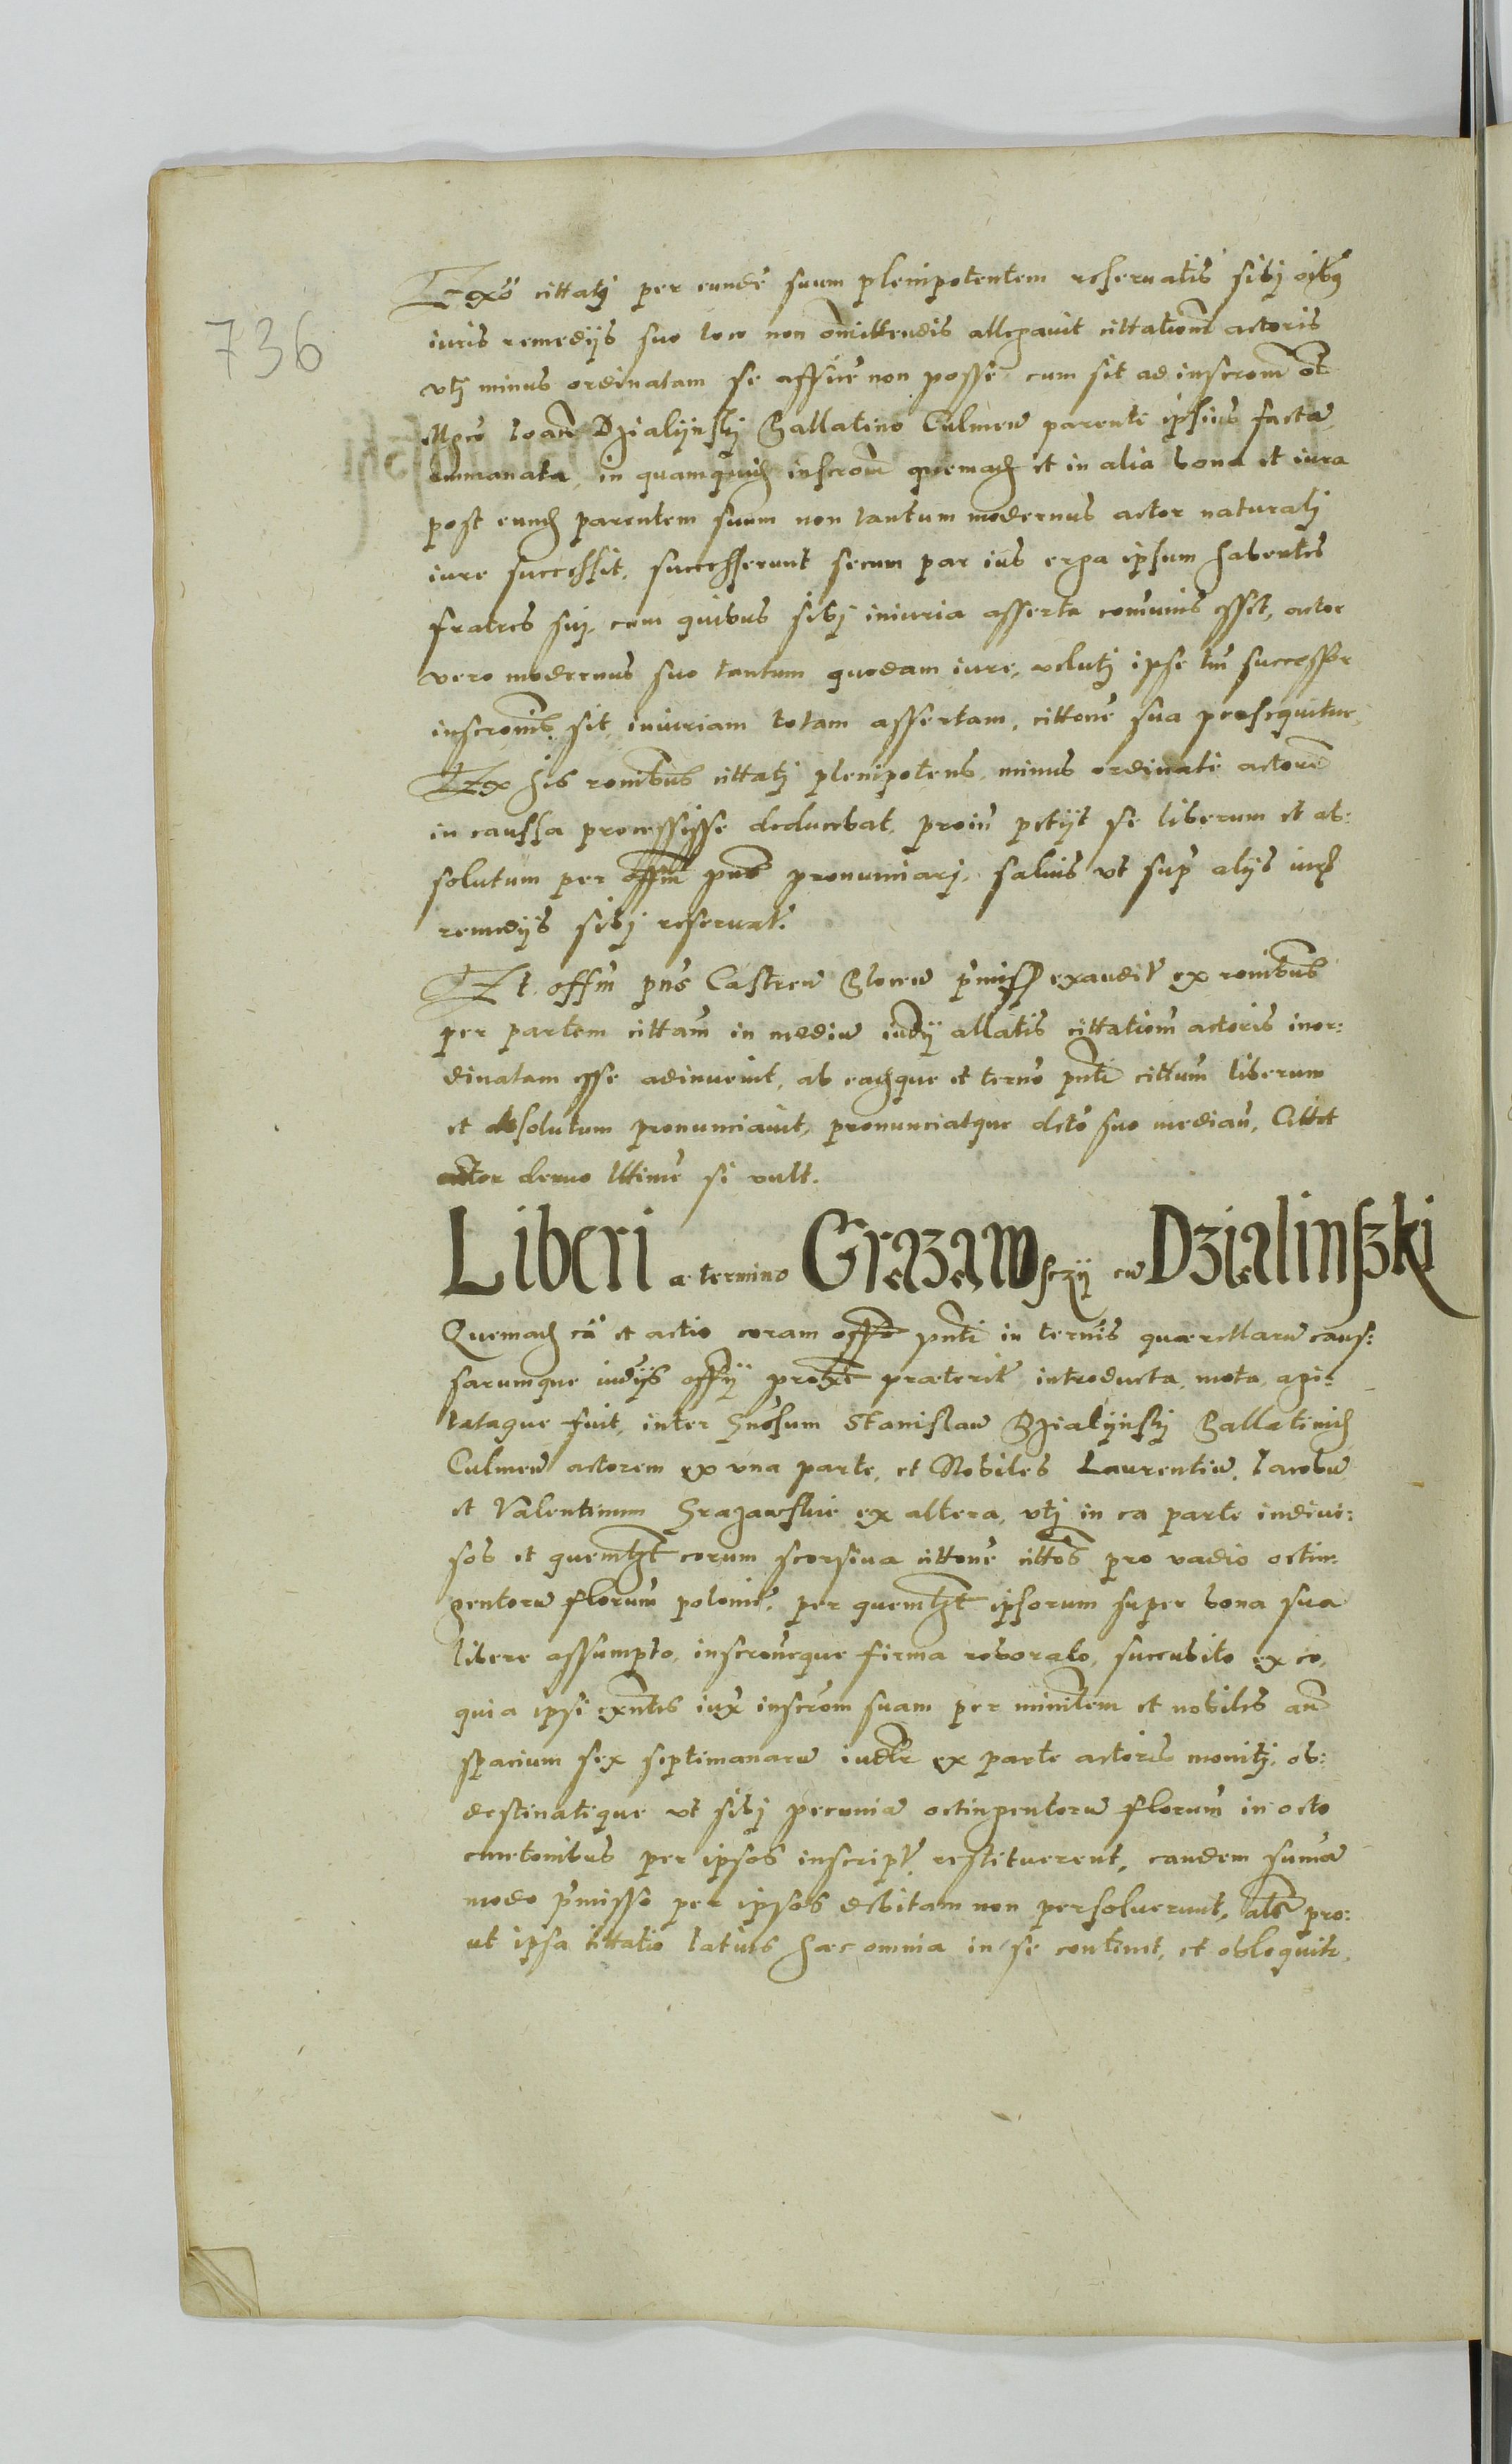 736
Ex quo cittatj per eundẽ suum plenipotentem reseruatis sibj oĩbꝫ
iuris remedijs suo loco non omittendis allegauit cittationẽ actoris
vtj minus ordinatam se afficẽ non posse cum sit ad inscrõm
Mgco Ioañ Dzialijnskj Pallatino Culmeñ parenti ipsius factã
emmanata, in quamquidẽ inscrõm quemadm̃ et in alia bona et iura
post eundẽ parentem suum non tantum modernus actor naturalj
iure successit, successerunt secum par ius erga ipsum habentes
fratres sui, cum quibus sibj iniuria asserta com̃unis essit, actor
vero modernus suo tantum quodam iure, velutj ipse tm̃ successor
inscronis sit, iniuriam totam assertam, cittone sua prosequitur,
Ex his ronibus cittatj plenipotens minus ordinatè actorẽ
in caussa processisse deducebat, proiñ petijt se liberum et ab:
solutum per offm̃ pñs pronunciarj, saluis vt supˀ alijs iurˀ
remedijs sibj reseruat.
Et offm̃ pñs Castreñ premissˀ exauditˀ ex ronibus
per partem cittam̃ in mediũ iudij allatis cittationẽ actoris inor:
dinatam esse adinuenit, ab eadẽque et termõ pñti cittum̃ liberum
et absolutum pronunciauit, pronunciatque dcto suo mediañ, Cittet
actor denuo lttime si vult.
Liberi a termino Grązawsczij cũ Działinszki
Quemadm̃ cã et actio coram offo pñti in termĩs quaerellarũ caus:
sarumque iudijs offij praeteritˀ introducta, mota, agi:
tataque fuit, inter Gñosum Stanislaũ Dzialijnskj Pallatinidẽ
Culmeñ actorem ex vna parte, et Nobiles Laurentiũ, Iacobũ
et Valentinum Grazawskie ex altera, vtj in ea parte indiui:
sos et quemlbt eorum seorsiua cittone cittos pro vadio octin:
gentorũ florum̃ poloniẽ, per quemlbt ipsorum super bona sua
libere assumpto, inscroneque firma roborato, succubito ex eo,
quia ipsi exñtes iuxˀ inscrõm suam per minrlem et nobiles añ
spacium sex septimanarũ iudlr ex parte actoris monitj, ob:
destinatique vt sibj pecuniã octingentorũ florum̃ in octo
cmetonibus per ipsos inscriptˀ restituerent, eandem sum̃ã
modo pˀmisso per ipsos debitam non persoluerunt, pro:
ut ipsa cittatio latius haec omnia in se continet, et obloquitr,